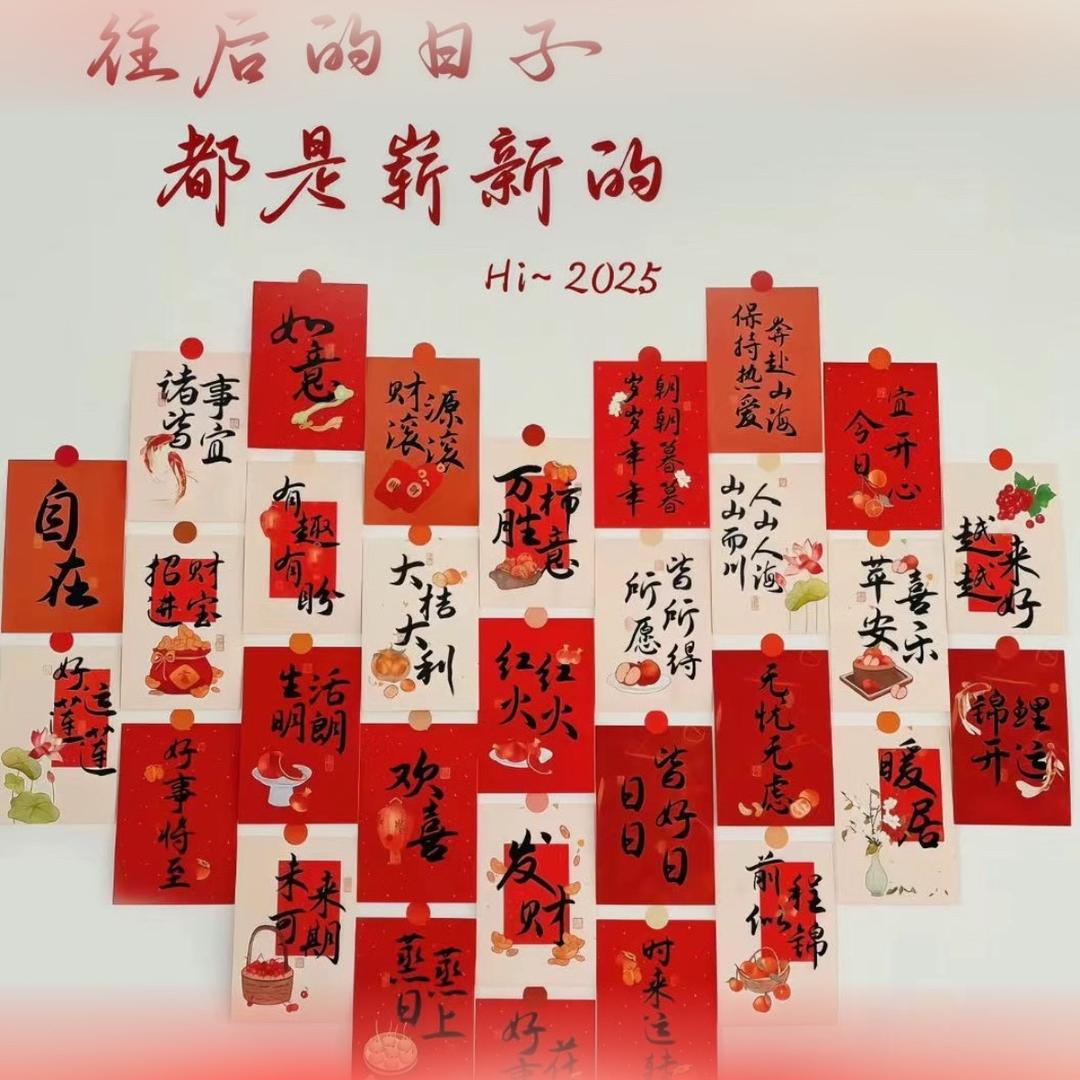 往后的日子
都是崭新的
Hi~ 2025
如意
保持热爱
奔赴山海
诸事
皆宜
财源
滚滚
岁岁年年
朝朝暮暮
今日
宜开心
自在
有趣
有盼
万柿
胜意
山山而川
人山人海
越来
越好
招财
进宝
大桔
大利
所愿
皆所得
苹安
喜乐
好运
莲莲
生活
明朗
红红
火火
无忧
无虑
锦鲤
开运
好事将至
欢喜
日日
皆好日
暖居
未来
可期
发财
前程
似锦
蒸蒸
日上
时来运转
好